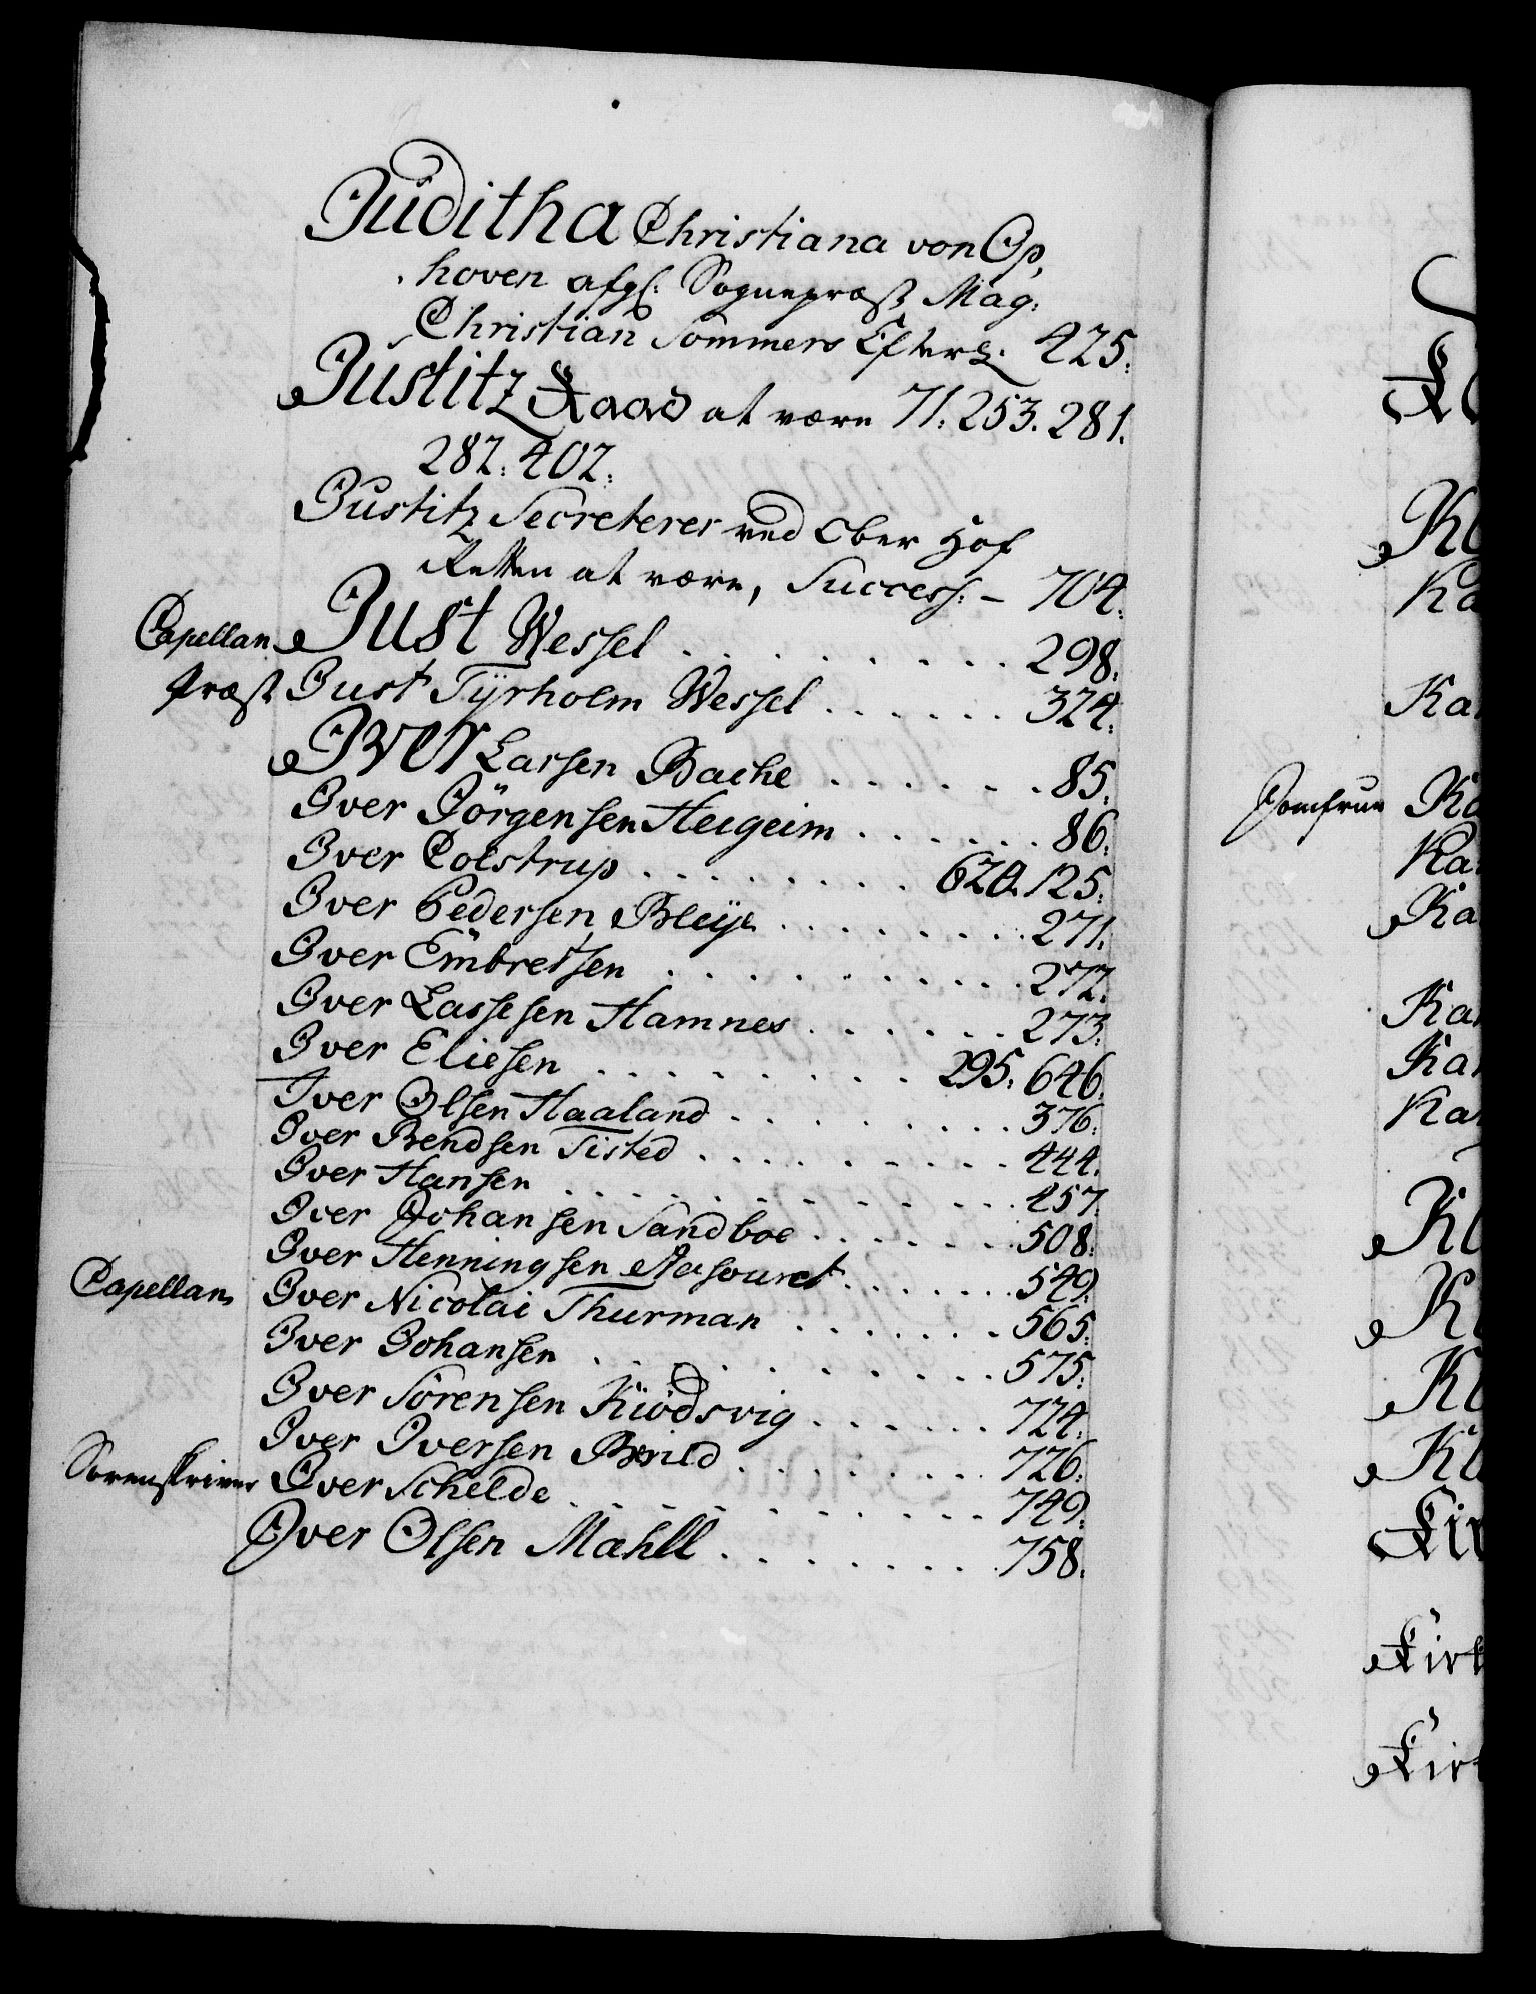 Juditha Christiana von Op,
hoven afgl: Sognepræst Mag:
Christian Sommers Efterl: 425:
Justitz Raad at være 71. 253. 281.
282. 402.
Justitz Secreterer ved Ober Hof
Retten at være, Success: – 704.
Capellan Just Wessel . . . . . . . . . 298.
Præst Just Tÿrholm Wessel . . . . . . 324.
Iver Larsen Bache . . . . . . 85.
Iver Jörgensen Heigeim . . . . . . 86.
Iver Colstrup . . . . . . . . 624. 125.
Iver Pedersen . . . . . . . . 271.
Iver Embretsen . . . . . . . . . . . 272.
Iver Lassesen Hamnes . . . . . . 273.
Iver Eliesen . . . . . . . . . 295. 646.
Iver Olsen Haaland . . . . . . . . . 376.
Iver Bendsen Tisted . . . . . . . . . 444.
Iver Hansen . . . . . . . . . . . . . 457.
Iver Johansen Sandboe . . . . . . . 508.
Iver Henningsen . . . . . . . 549.
Capellan Iver Nicolai Thurman . . . . . . . 565.
Iver Johansen . . . . . . . . . . . 575.
Iver Sörensen Kiödsvig . . . . . . 724.
Iver Iversen . . . . . . . . 726.
Sorenskriver Iver Schelde . . . . . . . . . . . 749.
Iver Olsen Mahll . . . . . . . . 758.
Kl
Ka
Kar
Jomfrue Ka
Kar
Ka
Kar
Kar
Kar
Kl
Kl
Kl
Kl
Kir
Kirk
Kirk